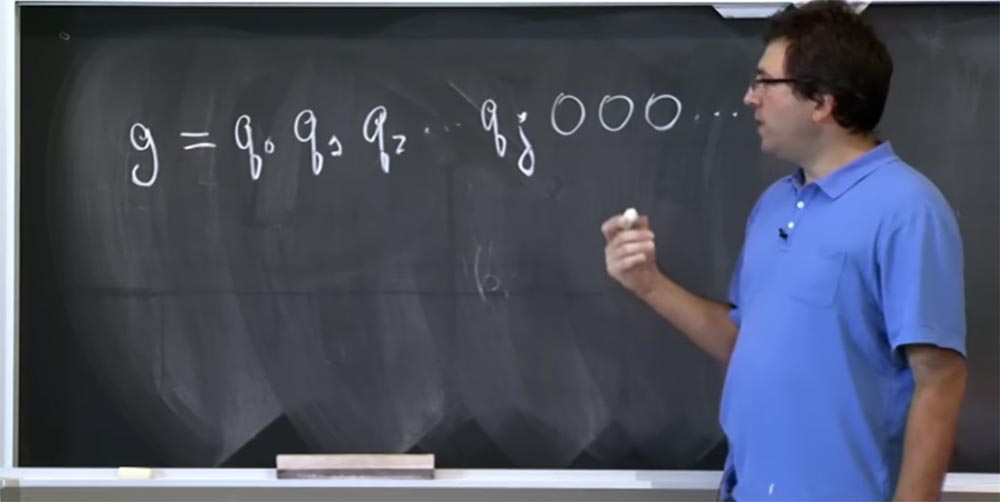 g = q₀ q₁ q₂ ... q_j 0 0 0 ...